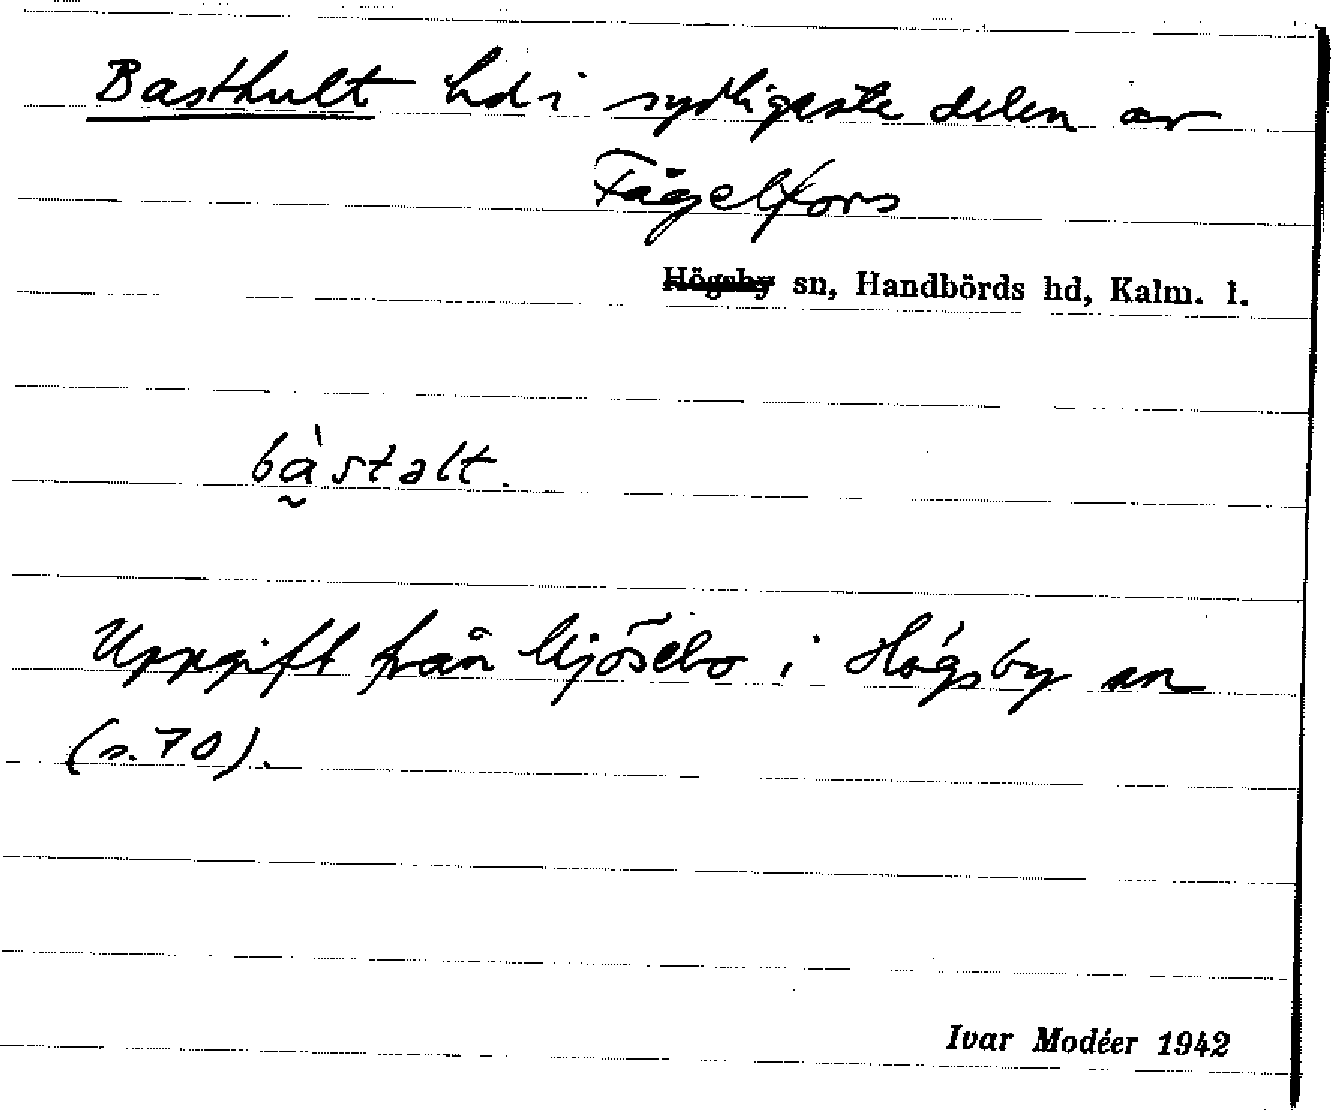 Basthult hd i sydligaste delen av
Fågelfors
Högsby sn, Handbörds hd, Kalm. l.
bàstalt.
Uppgift från Mjösebo i Högsby sn
(s. 70).
Ivar Modéer 1942